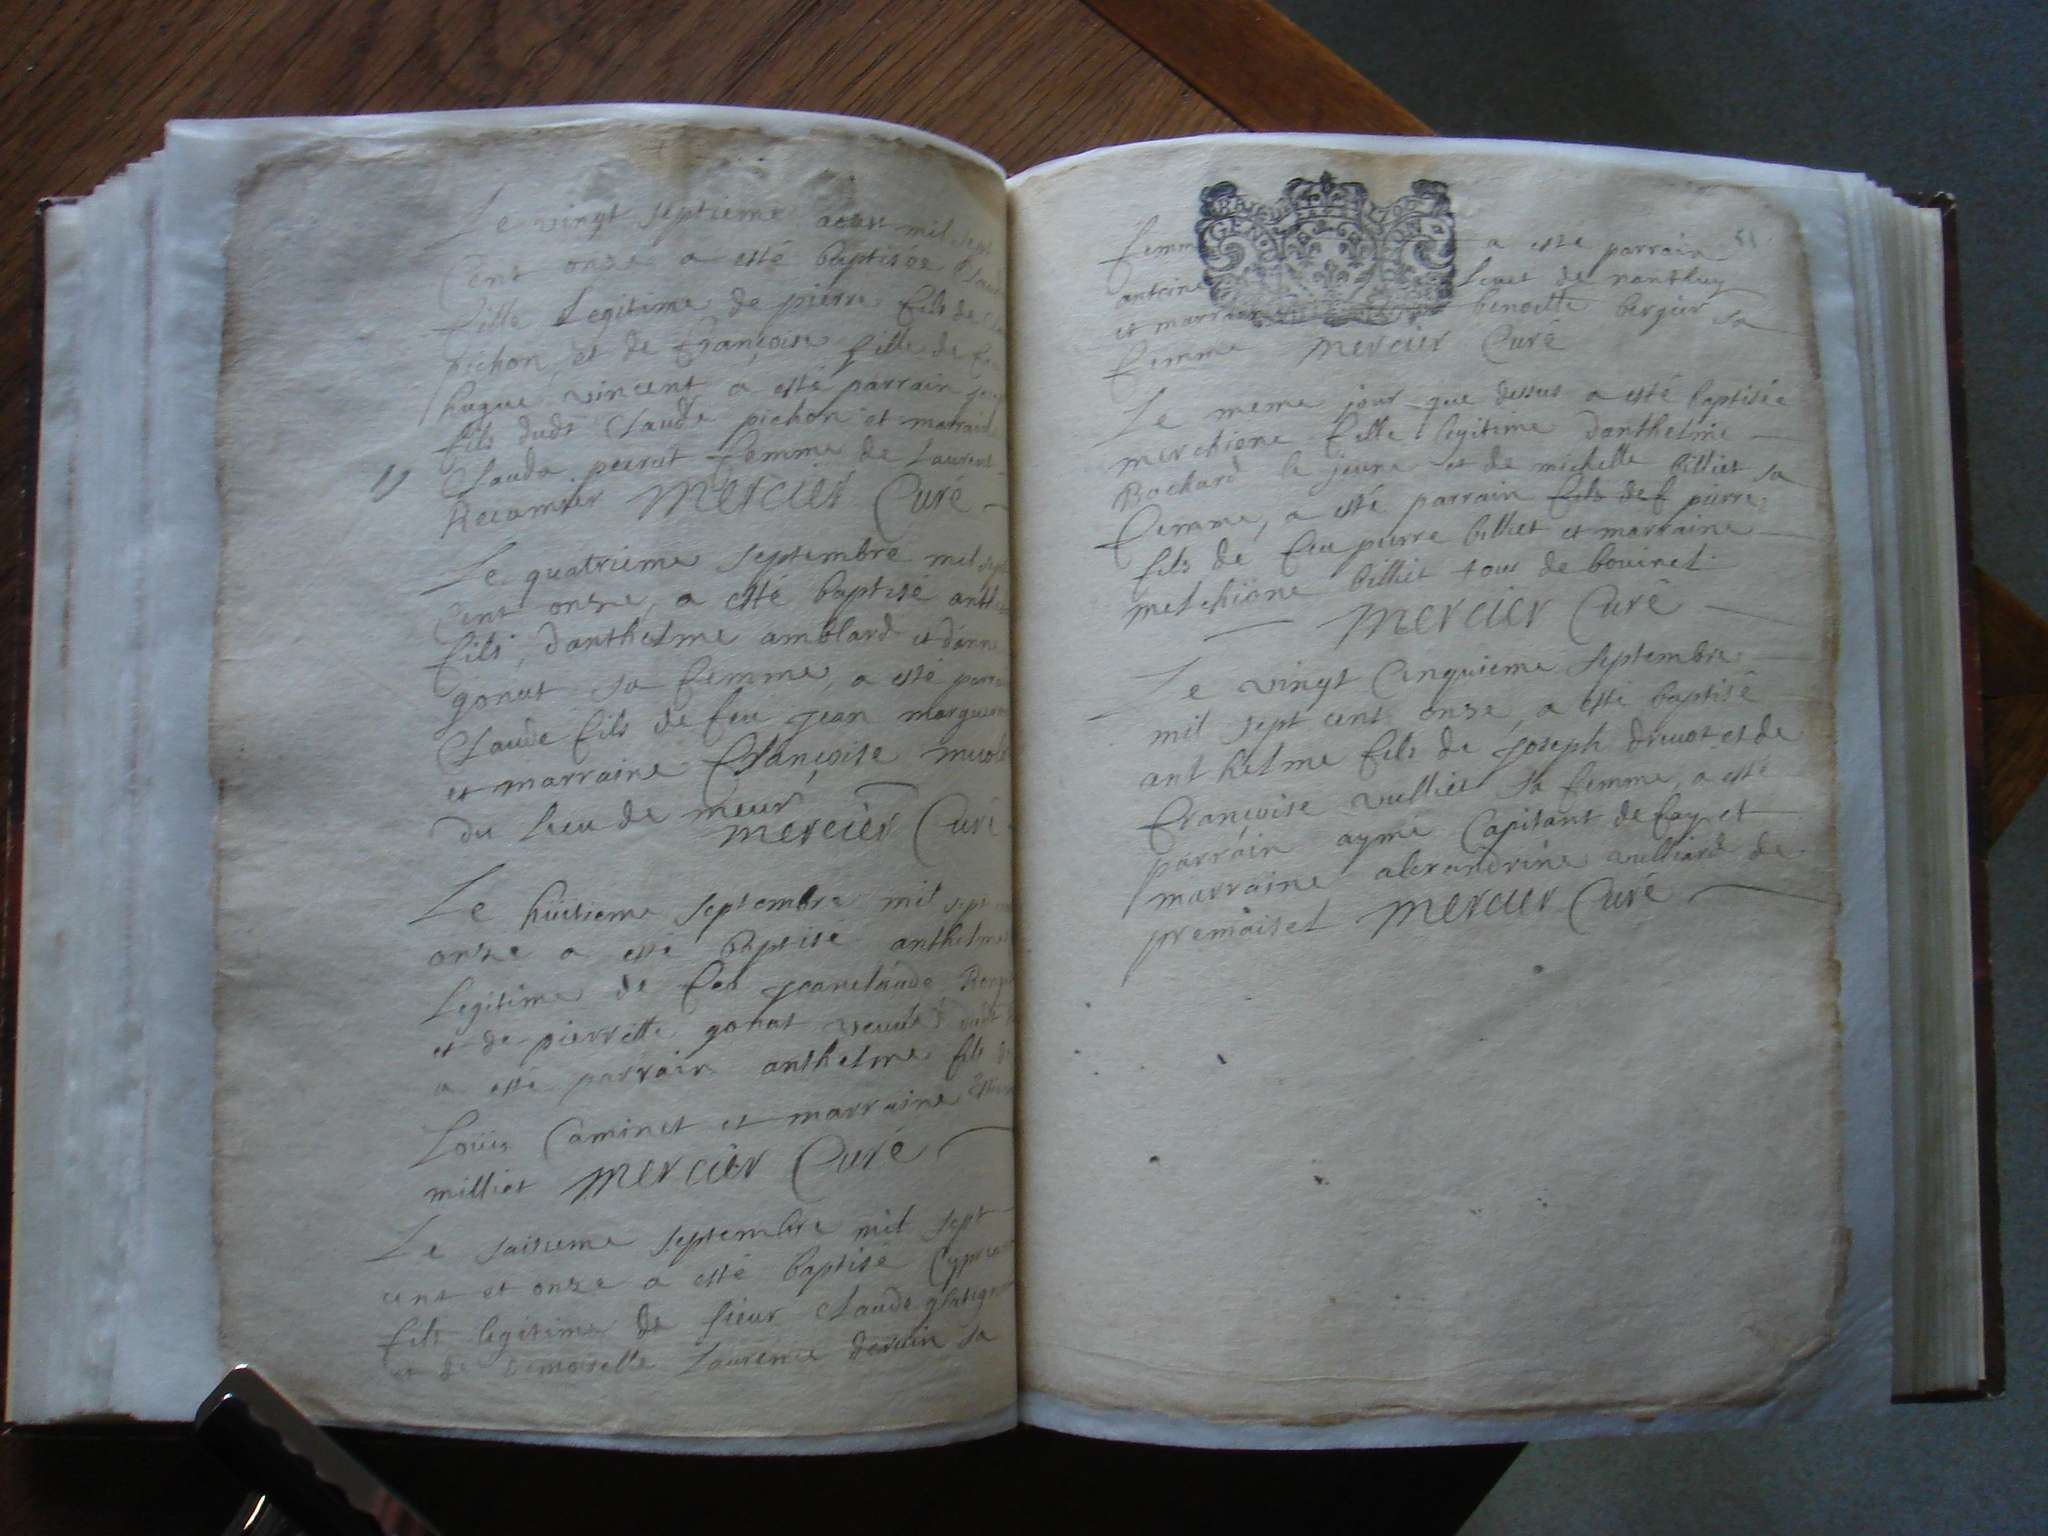 Le vingt septieme aoust mil sept
Cent onze a esté baptisée
fille Legitime de pierre fils de
pichon, et de françoise fille de
hugue vincent a esté parrain
fils dudt Claude pichon et marraine
Clauda peirat femme de Laurent
Recamier Mercier Curé
Le quatrieme septembre mil sept
Cent onze, a esté baptisé
fils, d'anthelme amblard et d'anne
gonat sa femme, a esté
Claude fils de feu jean
et marraine Françoise
du Lieu de meur
Mercier Curé
Le huitieme septembre mil sept
onze a esté baptisé anthelme
Legitime de feu jeanclaude
et de pierrette gonat veuve dudt
a esté parrain anthelme fils
Loüis Caminet et marraine
milliet Mercier Curé
Le saisieme septembre mil sept
cent et onze a esté baptisé
fils legitime de sieur Claude
et de Demoiselle Laurence dervin sa
51
femme a esté parrain
antoine de nanthuy
et marraine benoitte bergier sa
femme Mercier Curé
Le meme jour que dessus a esté baptisée
merchione fille legitime d'anthelme
Bochard le jeune et de michelle billiet sa
femme, a esté parrain fils de f pierre
fils de feu pierre billiet et marraine
melchiöne billiet tous de bovinel.
Mercier Curé
Le vingt Cinquieme septembre
mil sept cent onze, a esté baptisé
anthelme fils de joseph drevet et de
Françoise vulliet sa femme, a esté
parrain aymé Capitant de fay et
marraine alexandrine vulliard de
premaisel Mercier Curé